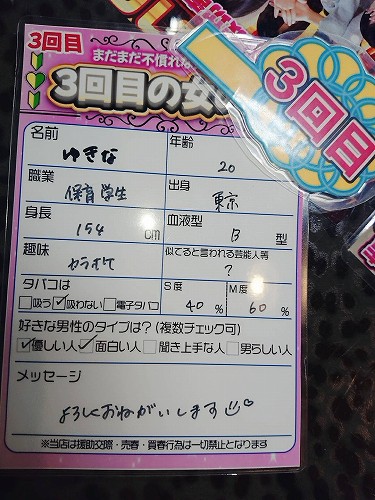 3回目
まだまだ不慣れな
3回目の女
3回目
名前
ゆきな
年齢
20
職業
保育学生
出身
東京
身長
154 cm
血液型
B 型
趣味
カラオケ
似てると言われる芸能人等
?
タバコは
□吸う ☑吸わない □電子タバコ
S度
40 %
M度
60 %
好きな男性のタイプは?(複数チェック可)
☑優しい人 ☑面白い人 □聞き上手な人 □男らしい人
メッセージ
よろしくおねがいします
※当店は援助交際・売春・買春行為は一切禁止となります